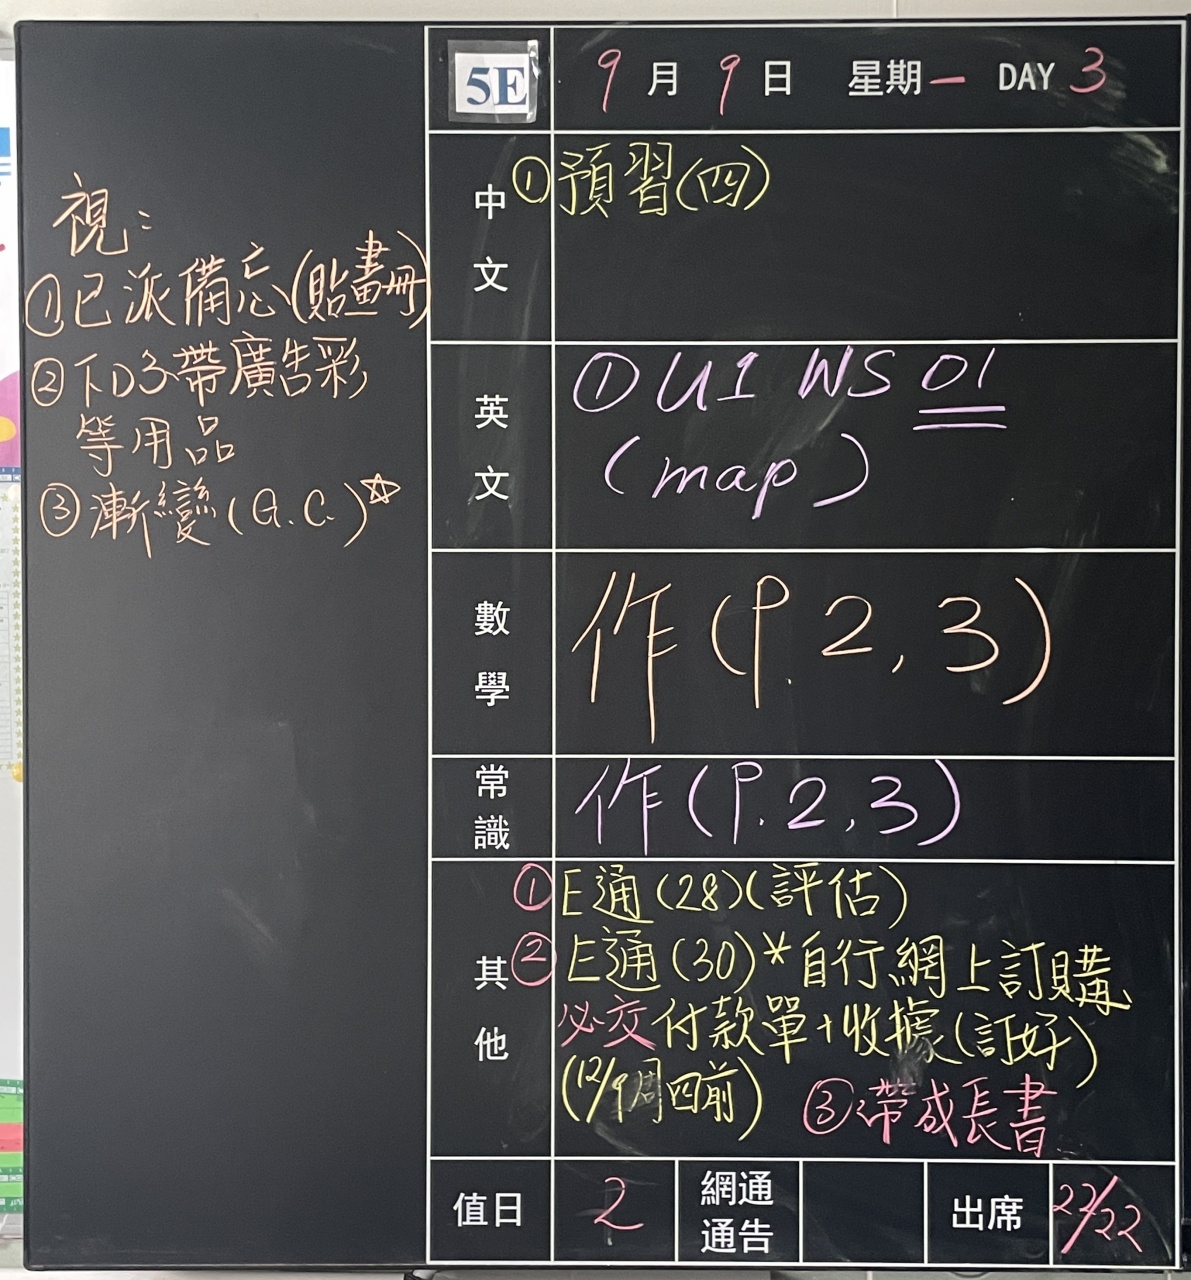 視：
①已派備忘(貼畫冊)
②下D3帶廣告彩
等用品
③漸變(G.C.)☆
5E 9月9日 星期一 DAY 3
中文 ①預習(四)
英文 ①U1 WS 01
(map)
數學 作(P.2,3)
常識 作(P.2,3)
其他 ①E通(28)(評估)
②E通(30)*自行網上訂購
必交付款單+收據(訂好)
(12/9周四前) ③帶成長書
值日 2 網通通告 出席 22/22